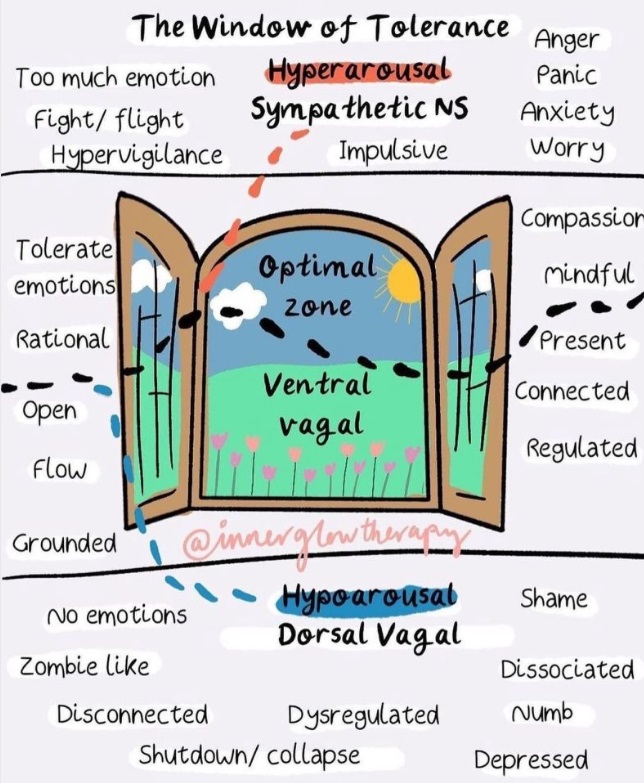 The Window of Tolerance
Anger
Too much emotion
Hyperarousal
Panic
Fight/ flight
Sympathetic NS
Anxiety
Hypervigilance
Impulsive
Worry
Tolerate
emotions
Rational
Open
Flow
Grounded
Optimal
zone
Ventral
vagal
Compassion
Mindful
Present
Connected
Regulated
@innerglowtherapy
No emotions
Hypoarousal
Dorsal Vagal
Shame
Zombie like
Dissociated
Disconnected
Dysregulated
Numb
Shutdown/ collapse
Depressed